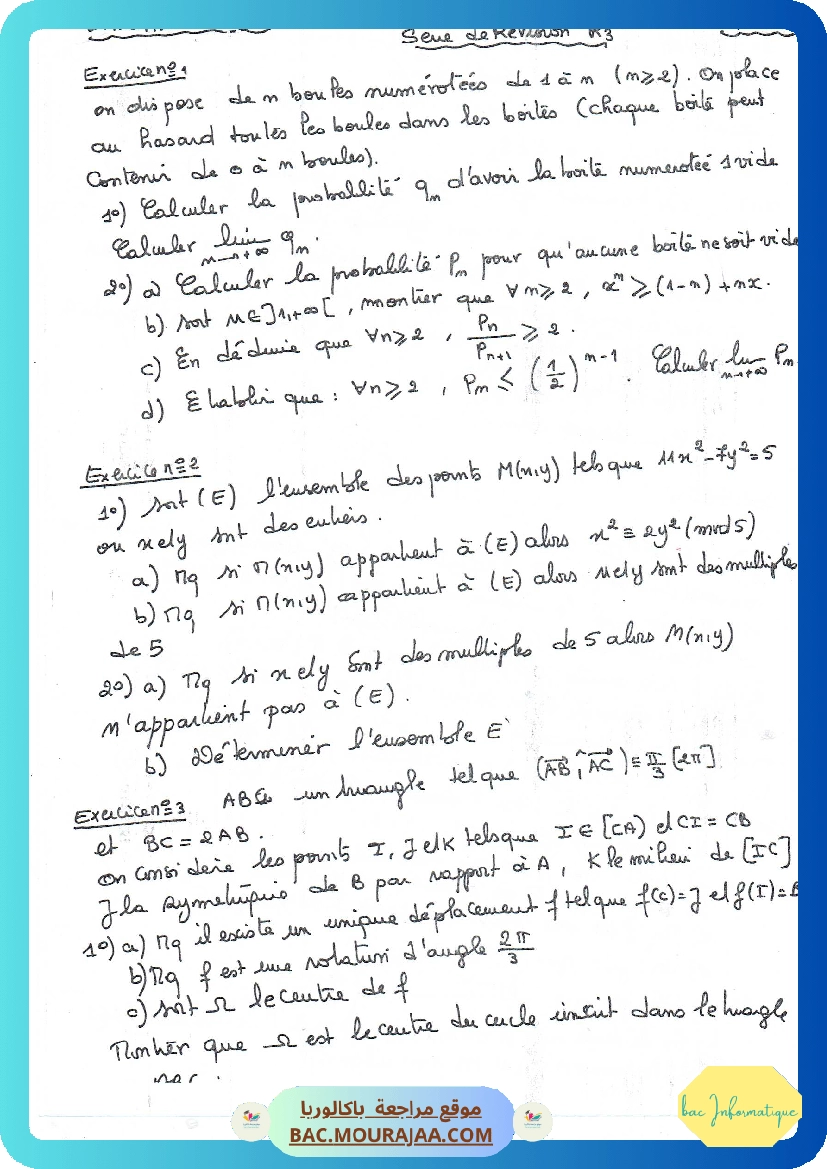 Serie de Revision N3
Exercice nº1
on dispose de n boules numérotées de 1 à n (n ≥ 2). On place
au hasard toutes les boules dans les boites (chaque boite peut
Contenir de 0 à n boules).
1º) Calculer la probabilité q_n d'avoir la boite numerotée 1 vide
Calculer lim q_n.
n→+∞
2º) a) Calculer la probabilité P_n pour qu'aucune boite ne soit vide
b) soit x ∈ ]1,+∞[, montrer que ∀ n ≥ 2, x^n ≥ (1-n) + nx.
c) En déduire que ∀n ≥ 2, P_n / P_{n+1} ≥ 2.
d) Etablir que : ∀n ≥ 2, P_n ≤ (1/2)^{n-1}. Calculer lim P_n
n→+∞
Exercice nº2
1º) soit (E) l'ensemble des points M(x,y) tels que 11x² - 7y² = 5
ou x et y sont des entiers.
a) Mq si M(x,y) appartient à (E) alors x² ≡ 2y² (mod 5)
b) Mq si M(x,y) appartient à (E) alors x et y sont des multiples
de 5
2º) a) Mq si x et y sont des multiples de 5 alors M(x,y)
n'appartient pas à (E).
b) Déterminer l'ensemble E
Exercice nº3 ABC un triangle tel que (AB, AC) ≡ π/3 [2π]
et BC = 2AB.
On considère les points I, J et K tels que I ∈ [CA) et CI = CB
J la symetrique de B par rapport à A, K le milieu de [IC]
1º) a) Mq il existe un unique déplacement f tel que f(C) = J et f(I) = B
b) Mq f est une rotation d'angle 2π/3
c) soit Ω le centre de f
Montrer que Ω est le centre du cercle inscrit dans le triangle
موقع مراجعة باكالوريا
BAC.MOURAJAA.COM
bac Informatique